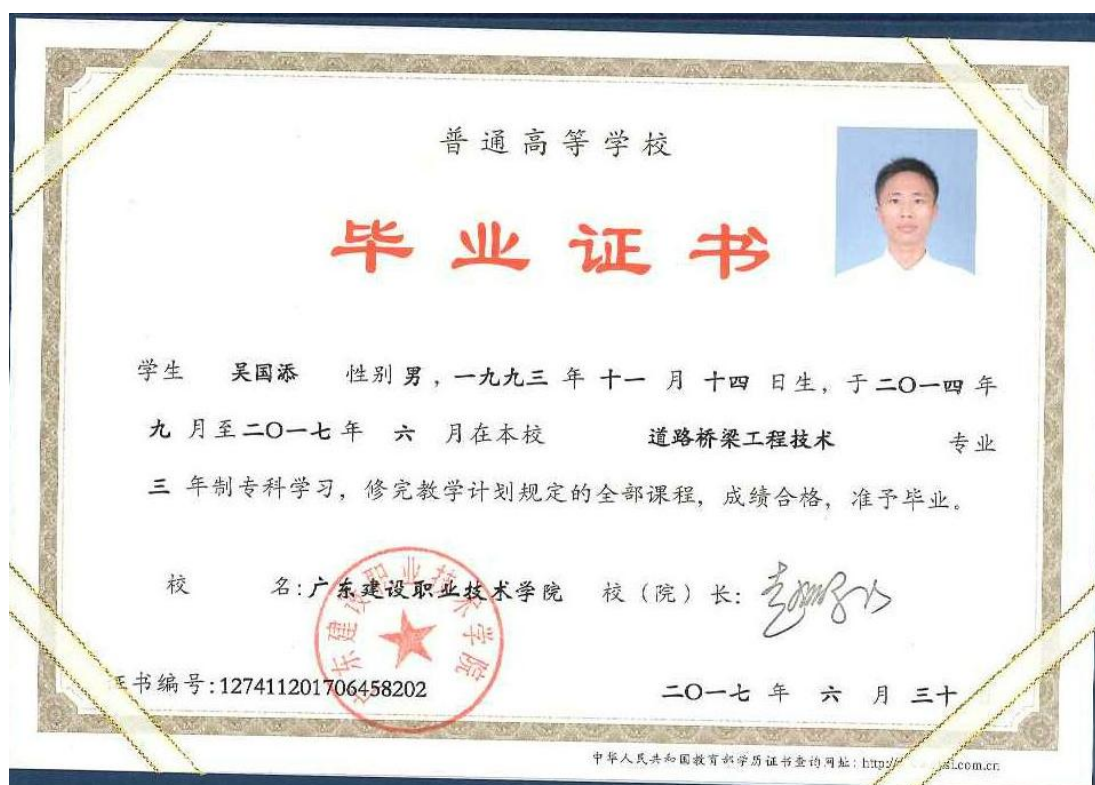 普通高等学校
毕业证书
学生 吴国添 性别 男，一九九三 年 十一 月 十四 日生，于二〇一四 年
九 月至二〇一七 年 六 月在本校 道路桥梁工程技术 专业
三 年制专科学习，修完教学计划规定的全部课程，成绩合格，准予毕业。
校 名:广东建设职业技术学院 校（院）长:
广东建设职业技术学院
书编号:127411201706458202
二〇一七 年 六 月 三十
中华人民共和国教育部学历证书查询网址: http:// si.com.cn